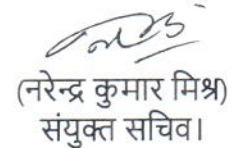 (नरेन्द्र कुमार मिश्र)
संयुक्त सचिव।